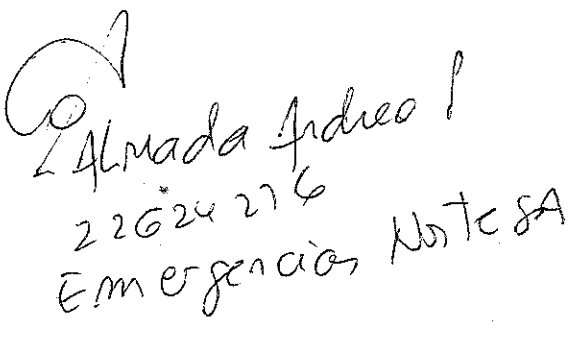 Almada Andrea P
22624276
Emergencias Norte SA